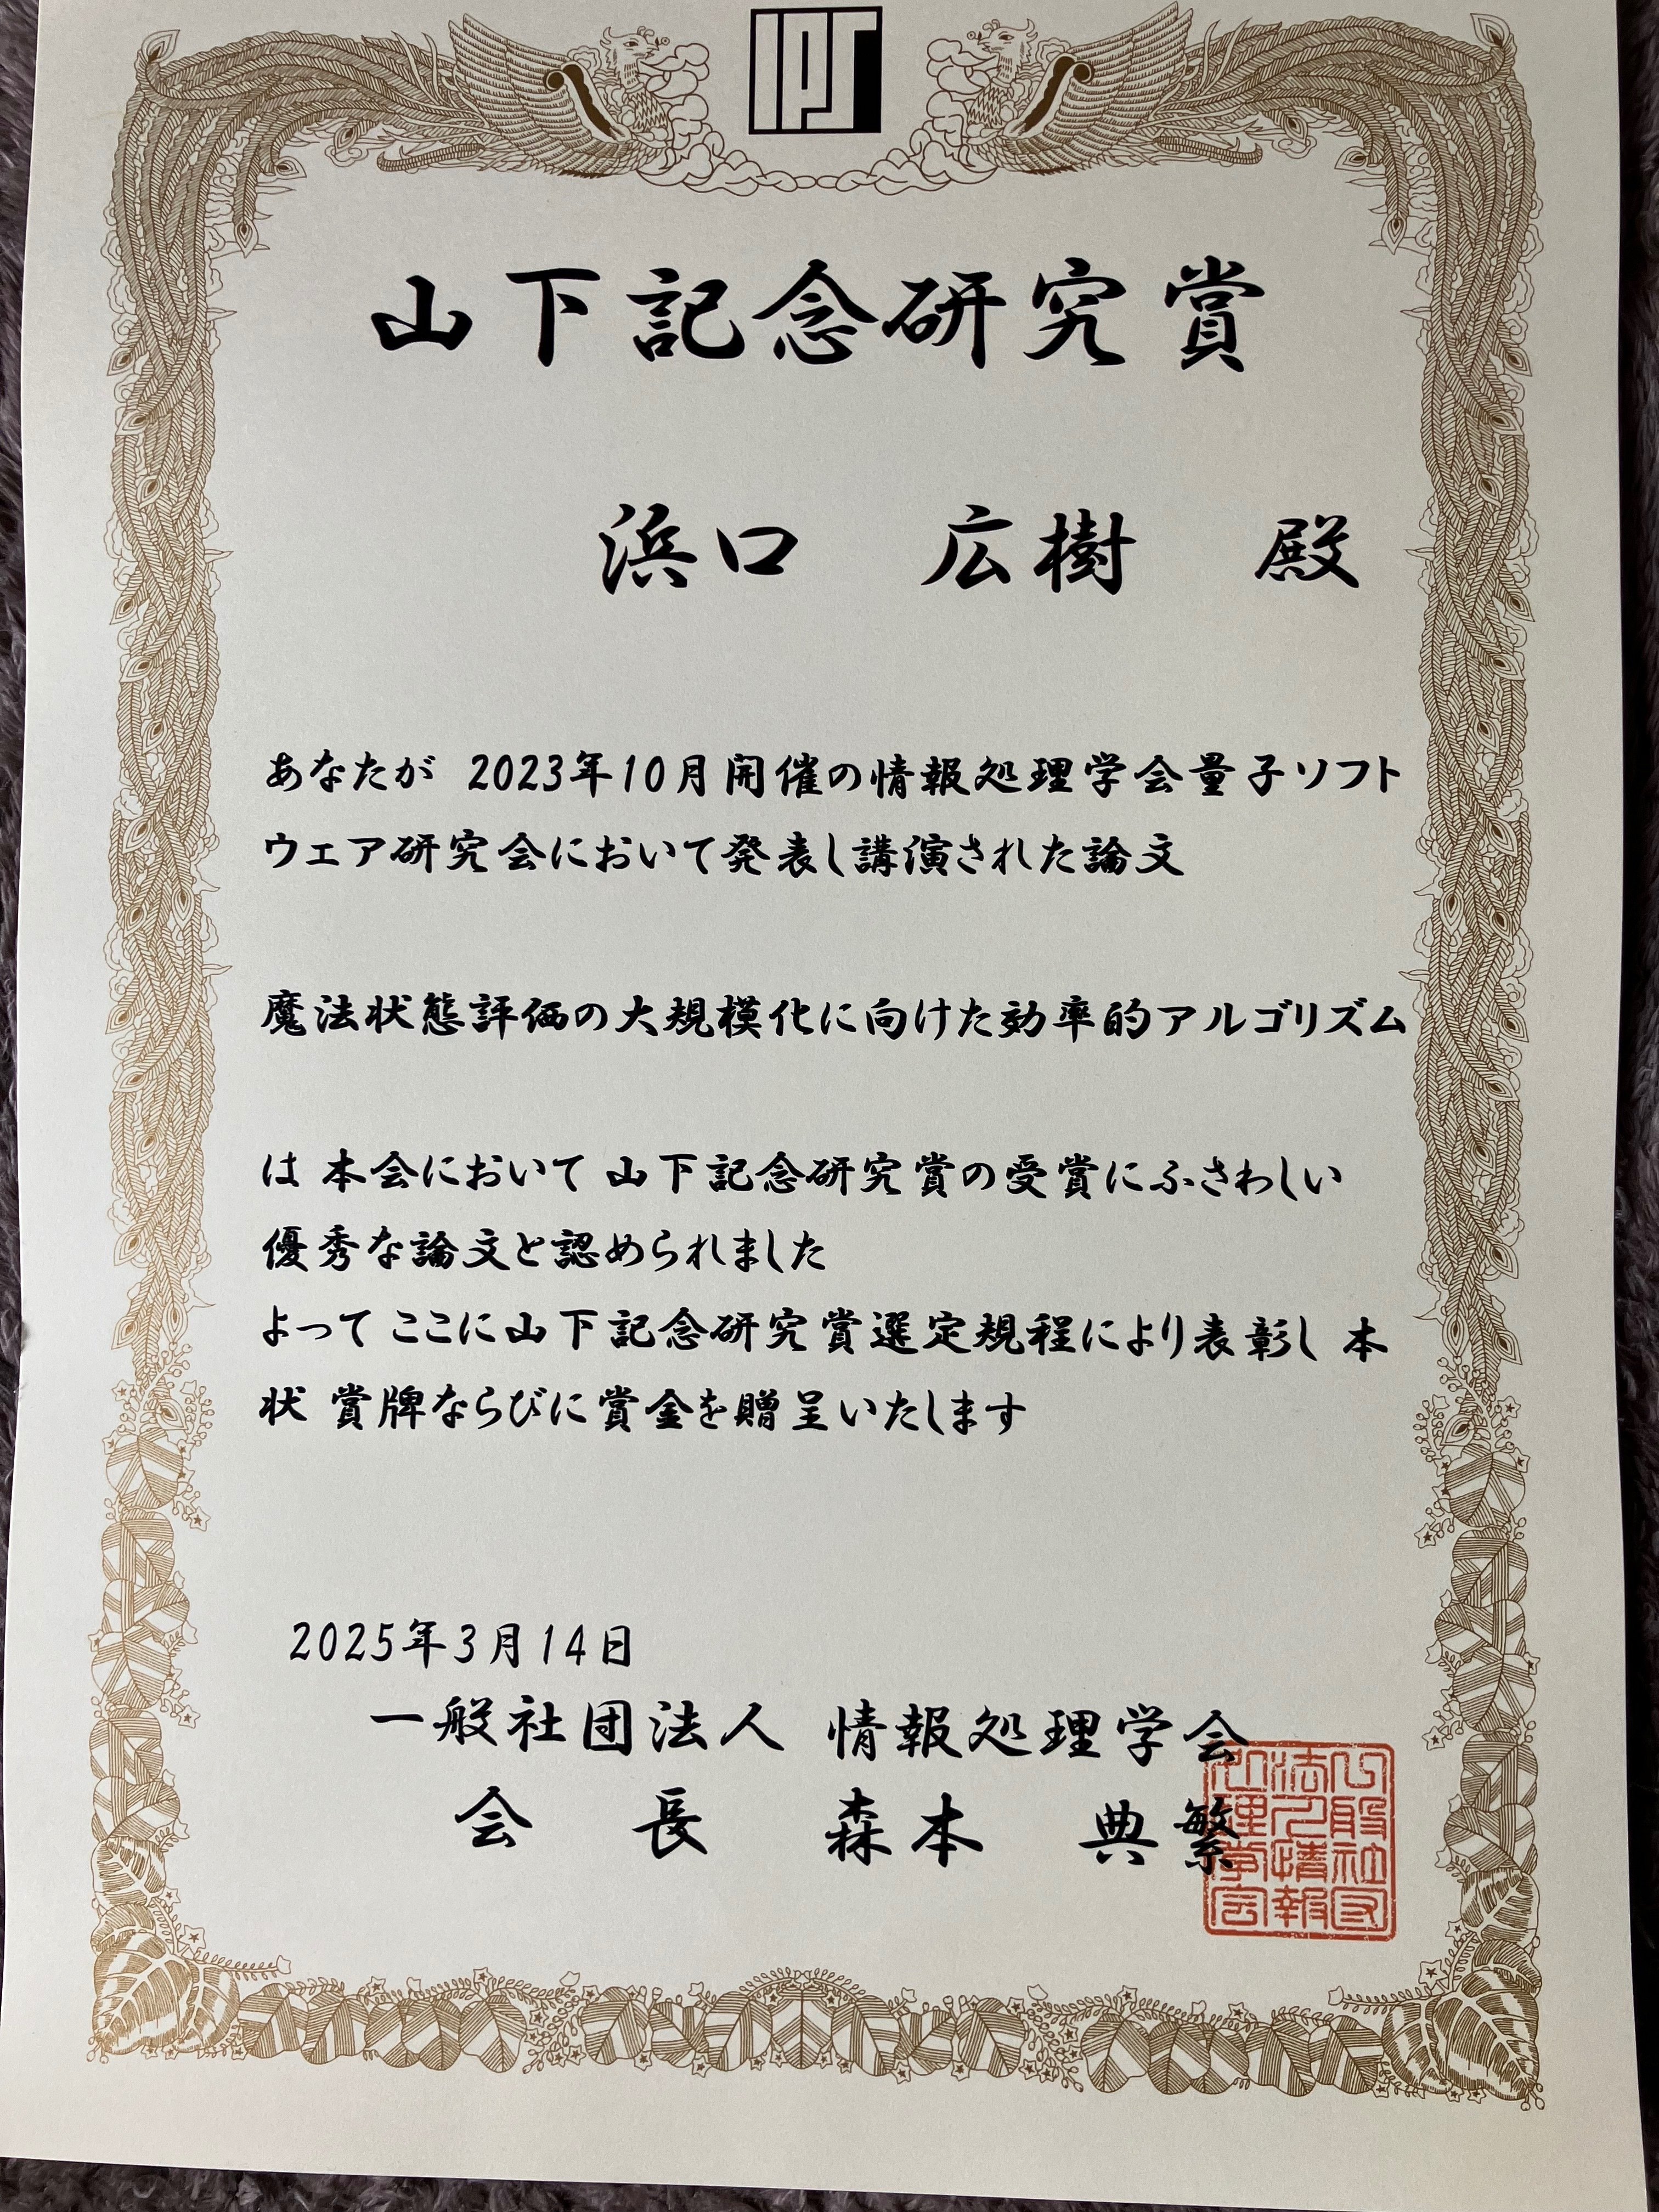 IPSJ
山下記念研究賞
浜口 広樹 殿
あなたが 2023年10月開催の情報処理学会量子ソフト
ウェア研究会において発表し講演された論文
魔法状態評価の大規模化に向けた効率的アルゴリズム
は 本会において 山下記念研究賞の受賞にふさわしい
優秀な論文と認められました
よって ここに山下記念研究賞選定規程により表彰し 本
状 賞牌ならびに賞金を贈呈いたします
2025年3月14日
一般社団法人 情報処理学会
会 長 森本 典繁
一般社団
法人情報
処理学会